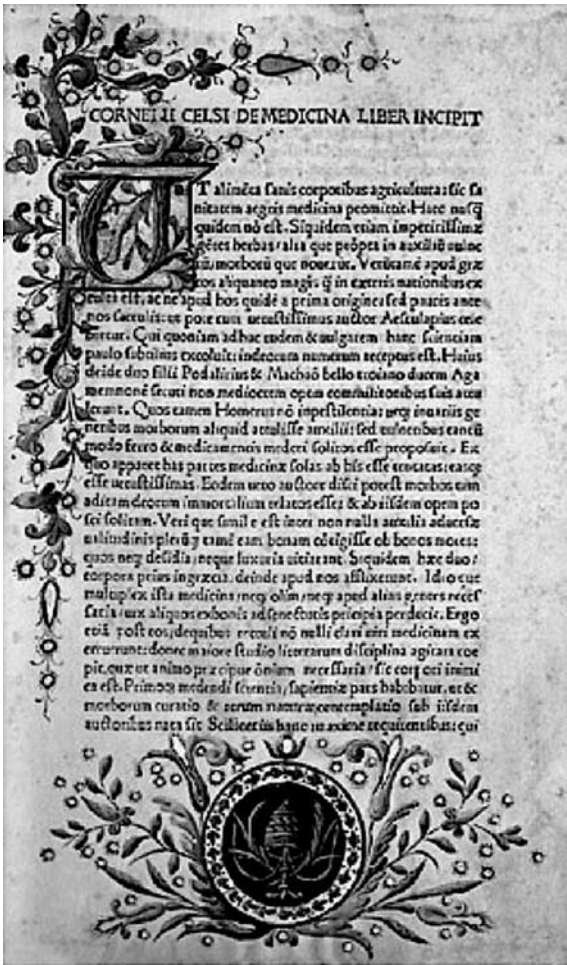 CORNELII CELSI DE MEDICINA LIBER INCIPIT
UT alimēta sanis corporibus agricultura: sic sa
nitatem aegris medicina promittit. Haec nusq̄
quidem nō est. Siquidem etiam imperitissimæ
gētes herbas/alia que prōpta in auxiliū uulne
rū/morborū que nouerūt. Verūtamē apud græ
cos aliquanto magis q̄ in cæteris nationibus ex
culta est, ac ne apud hos quidē a prima origine: sed paucis ante
nos sæculis: ut pote cum uetustissimus auctor Aesculapius cele
bretur. Qui quoniam adhuc rudem & uulgarem hanc scientiam
paulo subtilius excoluit: in deorum numerum receptus est. Huius
deīde duo filii Podalirius & Machaō bello troiano ducem Aga
memnonē secuti non mediocrem opem commilitonibus suis attu
lerunt. Quos tamen Homerus nō in pestilentia: neq; in uariis ge
neribus morborum aliquid attulisse auxilii: sed uulneribus tantū
modo ferro & medicamentis mederi solitos esse proposuit. Ex
quo apparet has partes medicinæ solas ab his esse tentatas: easq;
esse uetustissimas. Eodem uero auctore disci potest morbos tum
ad iram deorum immortalium relatos esse: & ab iisdem opem po
sci solitam. Veri que simile est inter non nulla auxilia aduersæ
ualitudinis plerūq; tamē eam bonam cōtigisse ob bonos mores:
quos neq; desidia/neque luxuria uitiarant. Siquidem hæc duo/
corpora prius in græcia, deinde apud nos afflixerunt. Ideo que
multiplex ista medicina/neq; olim/neq; apud alias gentes neces
saria/uix aliquos ex nobis ad senectutis prīcipia perducit. Ergo
etiā post eos/de quibus retuli nō nulli clari uiri medicinam ex
ercuerunt: donec maiore studio litterarum disciplina agitari coe
pit, quæ ut animo præcipue ōnium necessaria/sic corpori inimi
ca est. Primoq; medendi scientia/sapientiæ pars habebatur, ut &
morborum curatio & rerum naturæ contemplatio sub iisdem
auctoribus nata sit. Scilicet iis hanc maxime requirentibus: qui